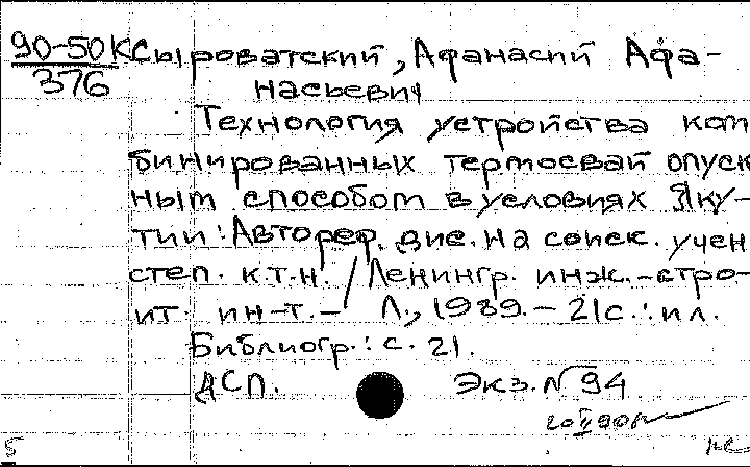 90-50К Сыроватский, Афанасий Афа-
376
насьевич
Технология устройства ком
бинированных термосвай опуск
ным способом в условиях Яку-
тии: Автореф. дис. на соиск. учен
степ. к.т.н. / Ленингр. инж.-стро-
ит. ин-т. – Л., 1989. – 21 с.: ил.
Библиогр.: с. 21.
ДСП. Экз. N 94